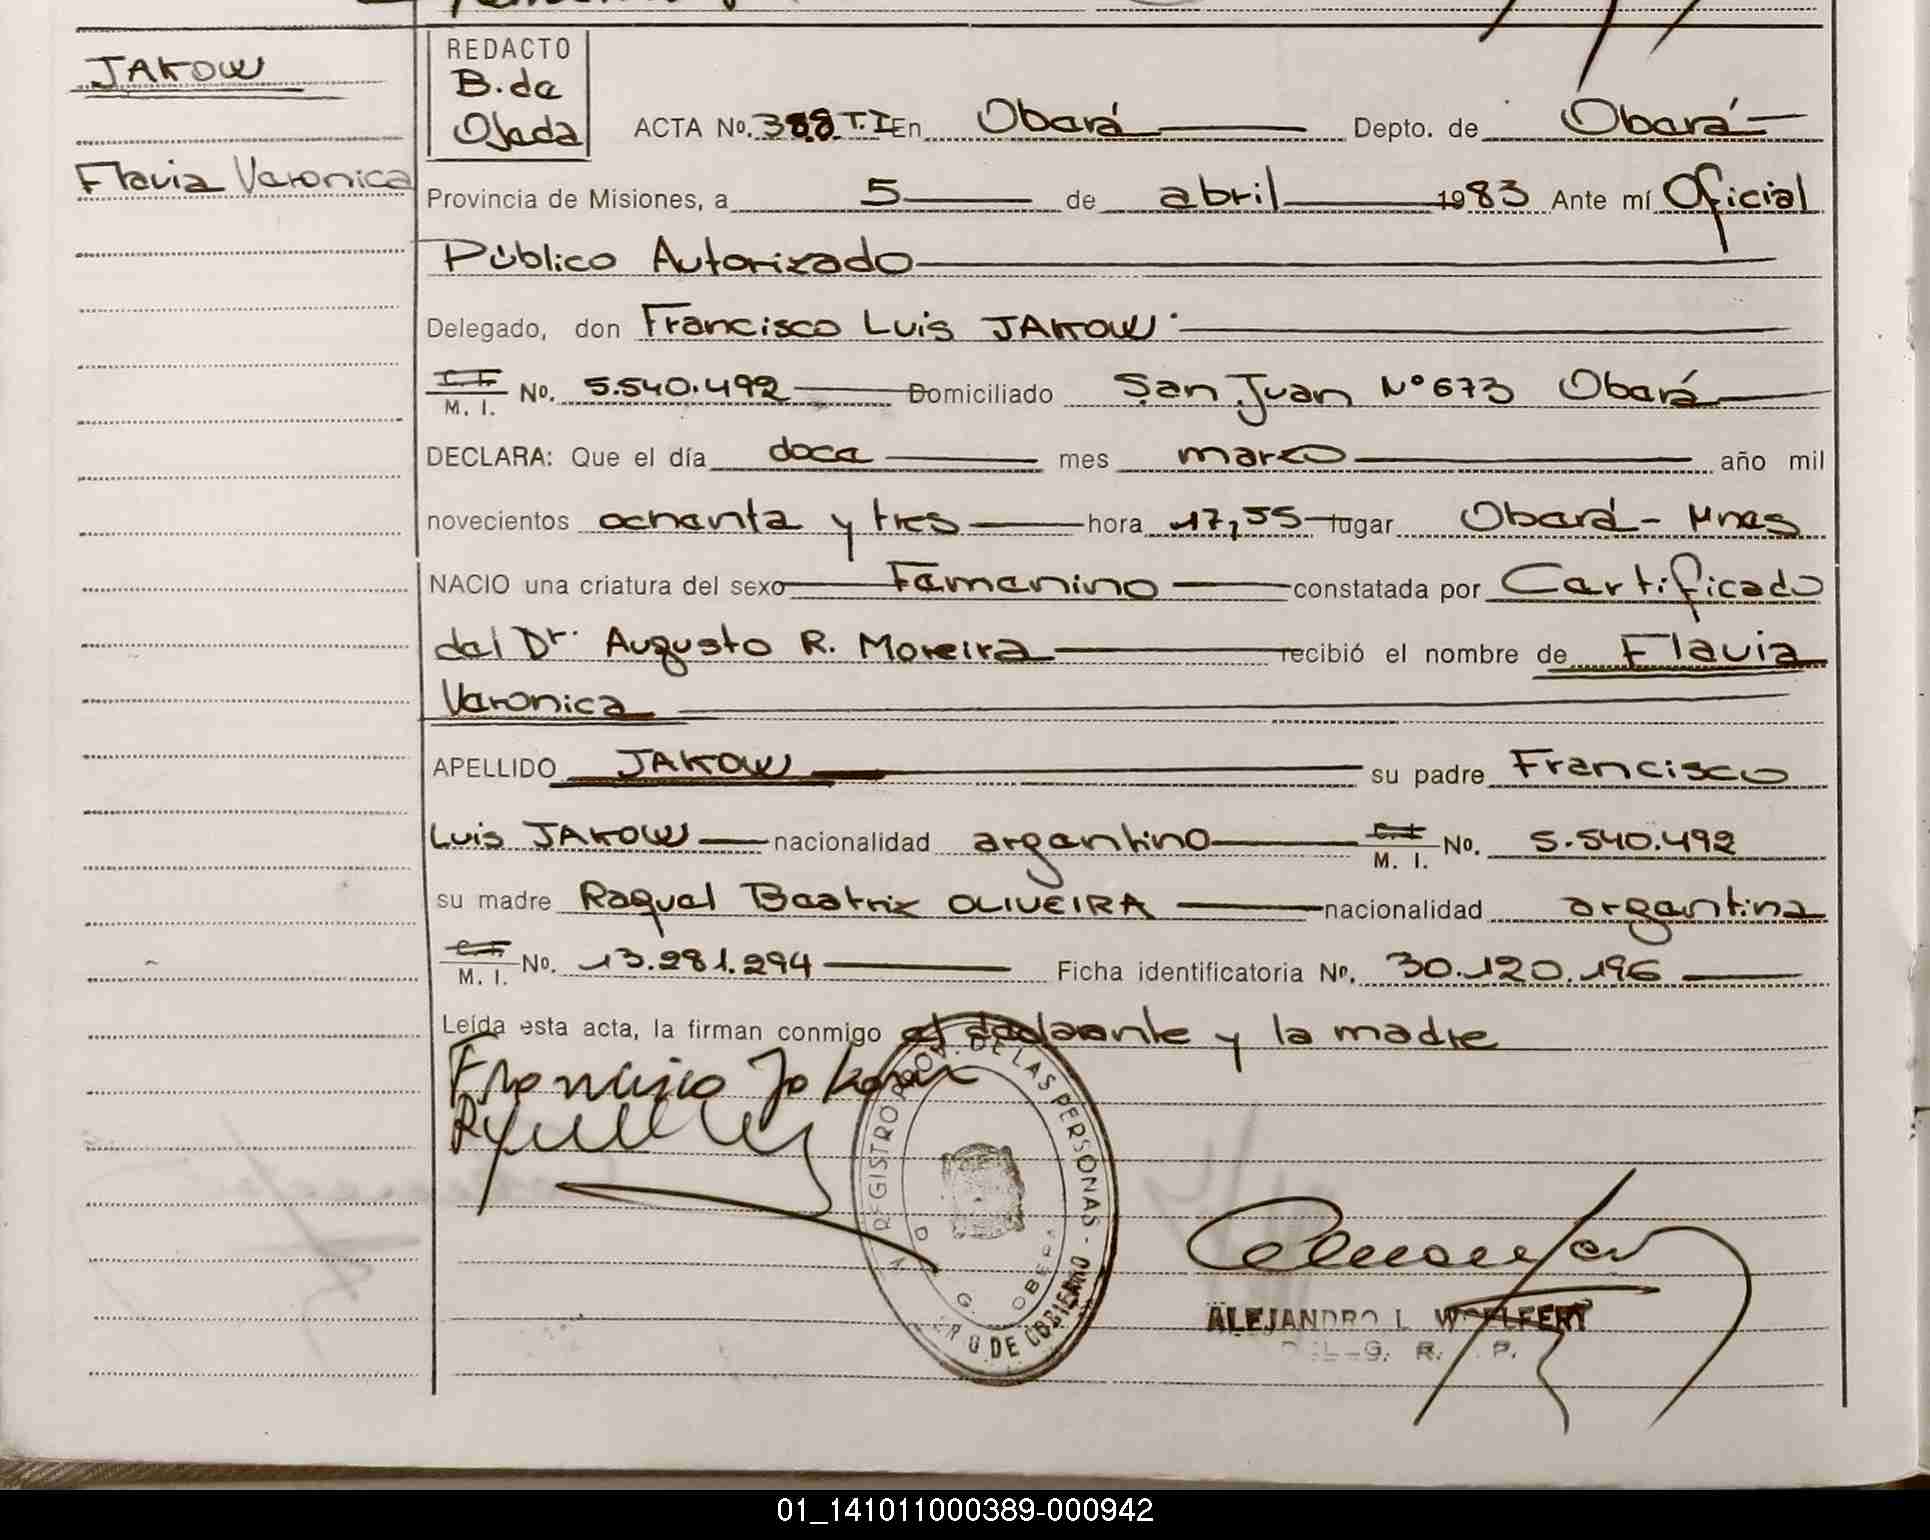 JAKOW
Flavia Veronica
REDACTO
B. de
Ojeda
ACTA No. 388 T. I En Oberá Depto. de Oberá
Provincia de Misiones, a 5 de abril 1983 Ante mí Oficial
Público Autorizado
Delegado, don Francisco Luis JAKOW
C. I. M. I. No. 5.540.492 Domiciliado San Juan Nº 673 Oberá
DECLARA: Que el día doce mes marzo año mil
novecientos ochenta y tres hora 17,55 lugar Oberá - Mnes
NACIO una criatura del sexo Femenino constatada por Certificado
del Dr. Augusto R. Moreira recibió el nombre de Flavia
Veronica
APELLIDO JAKOW su padre Francisco
Luis JAKOW nacionalidad argentino C. I. M. I. No. 5.540.492
su madre Raquel Beatriz OLIVEIRA nacionalidad argentina
C. I. M. I. No. 13.281.294 Ficha identificatoria No. 30.120.196
Leída esta acta, la firman conmigo el declarante y la madre
Francisco Jakow
REGISTRO PROV. DE LAS PERSONAS -
OBERA
DE GOBIERNO
ALEJANDRO L. WOELFERT
01_141011000389-000942